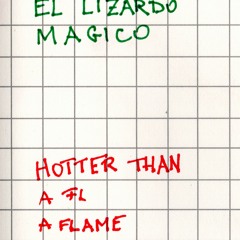 EL LIZARDO
MAGICO
HOTTER THAN
A FL
A FLAME